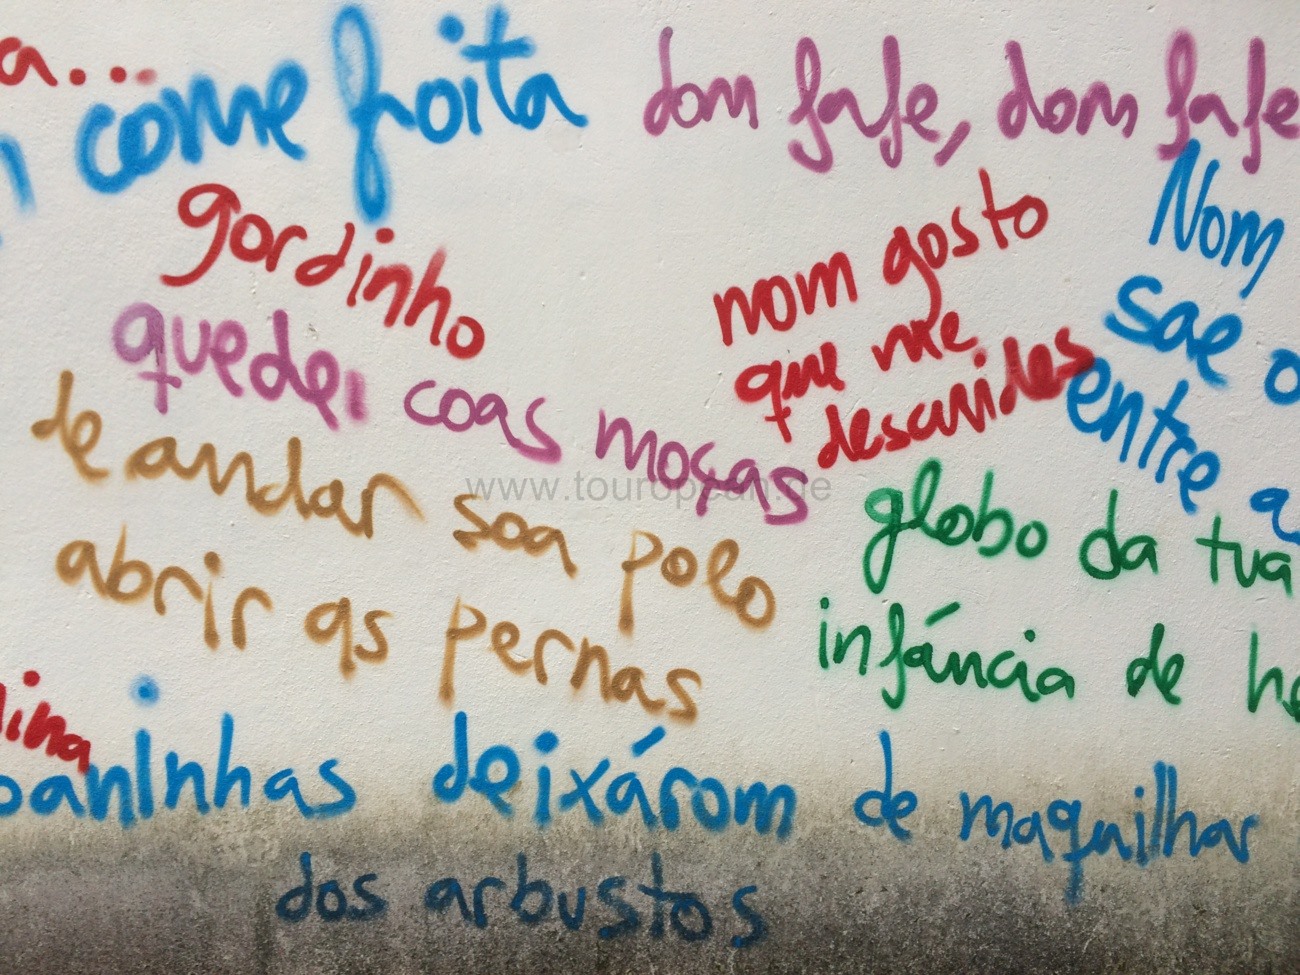 a...
come froita
dom fafe, dom fafe
gordinho
nom gosto
que me
descuides
Nom
sae o
entre a
quedei coas moças
de andar soa polo
abrir as pernas
www.touropean.de
globo da tua
infáncia de he
lina
oaninhas deixárom de maquilhar
dos arbustos